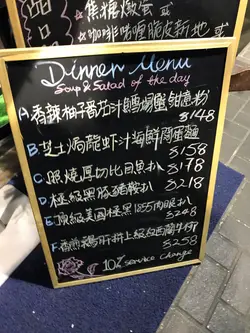 焦糖燉蛋 或
咖啡啫喱脆皮新地 或
Dinner Menu
Soup & Salad of the day
A. 香辣柚子番茄汁鱈場蟹鉗意粉
$148
B. 芝士焗龍蝦汁海鮮闊蛋麵
$158
C. 照燒厚切比目魚扒 $178
D. 極級黑豚豬鞍扒 $218
E. 頂級美國極黑1855肉眼扒
$248
F. 香煎鵝肝拼上級紐西蘭牛柳
$258
10% service change